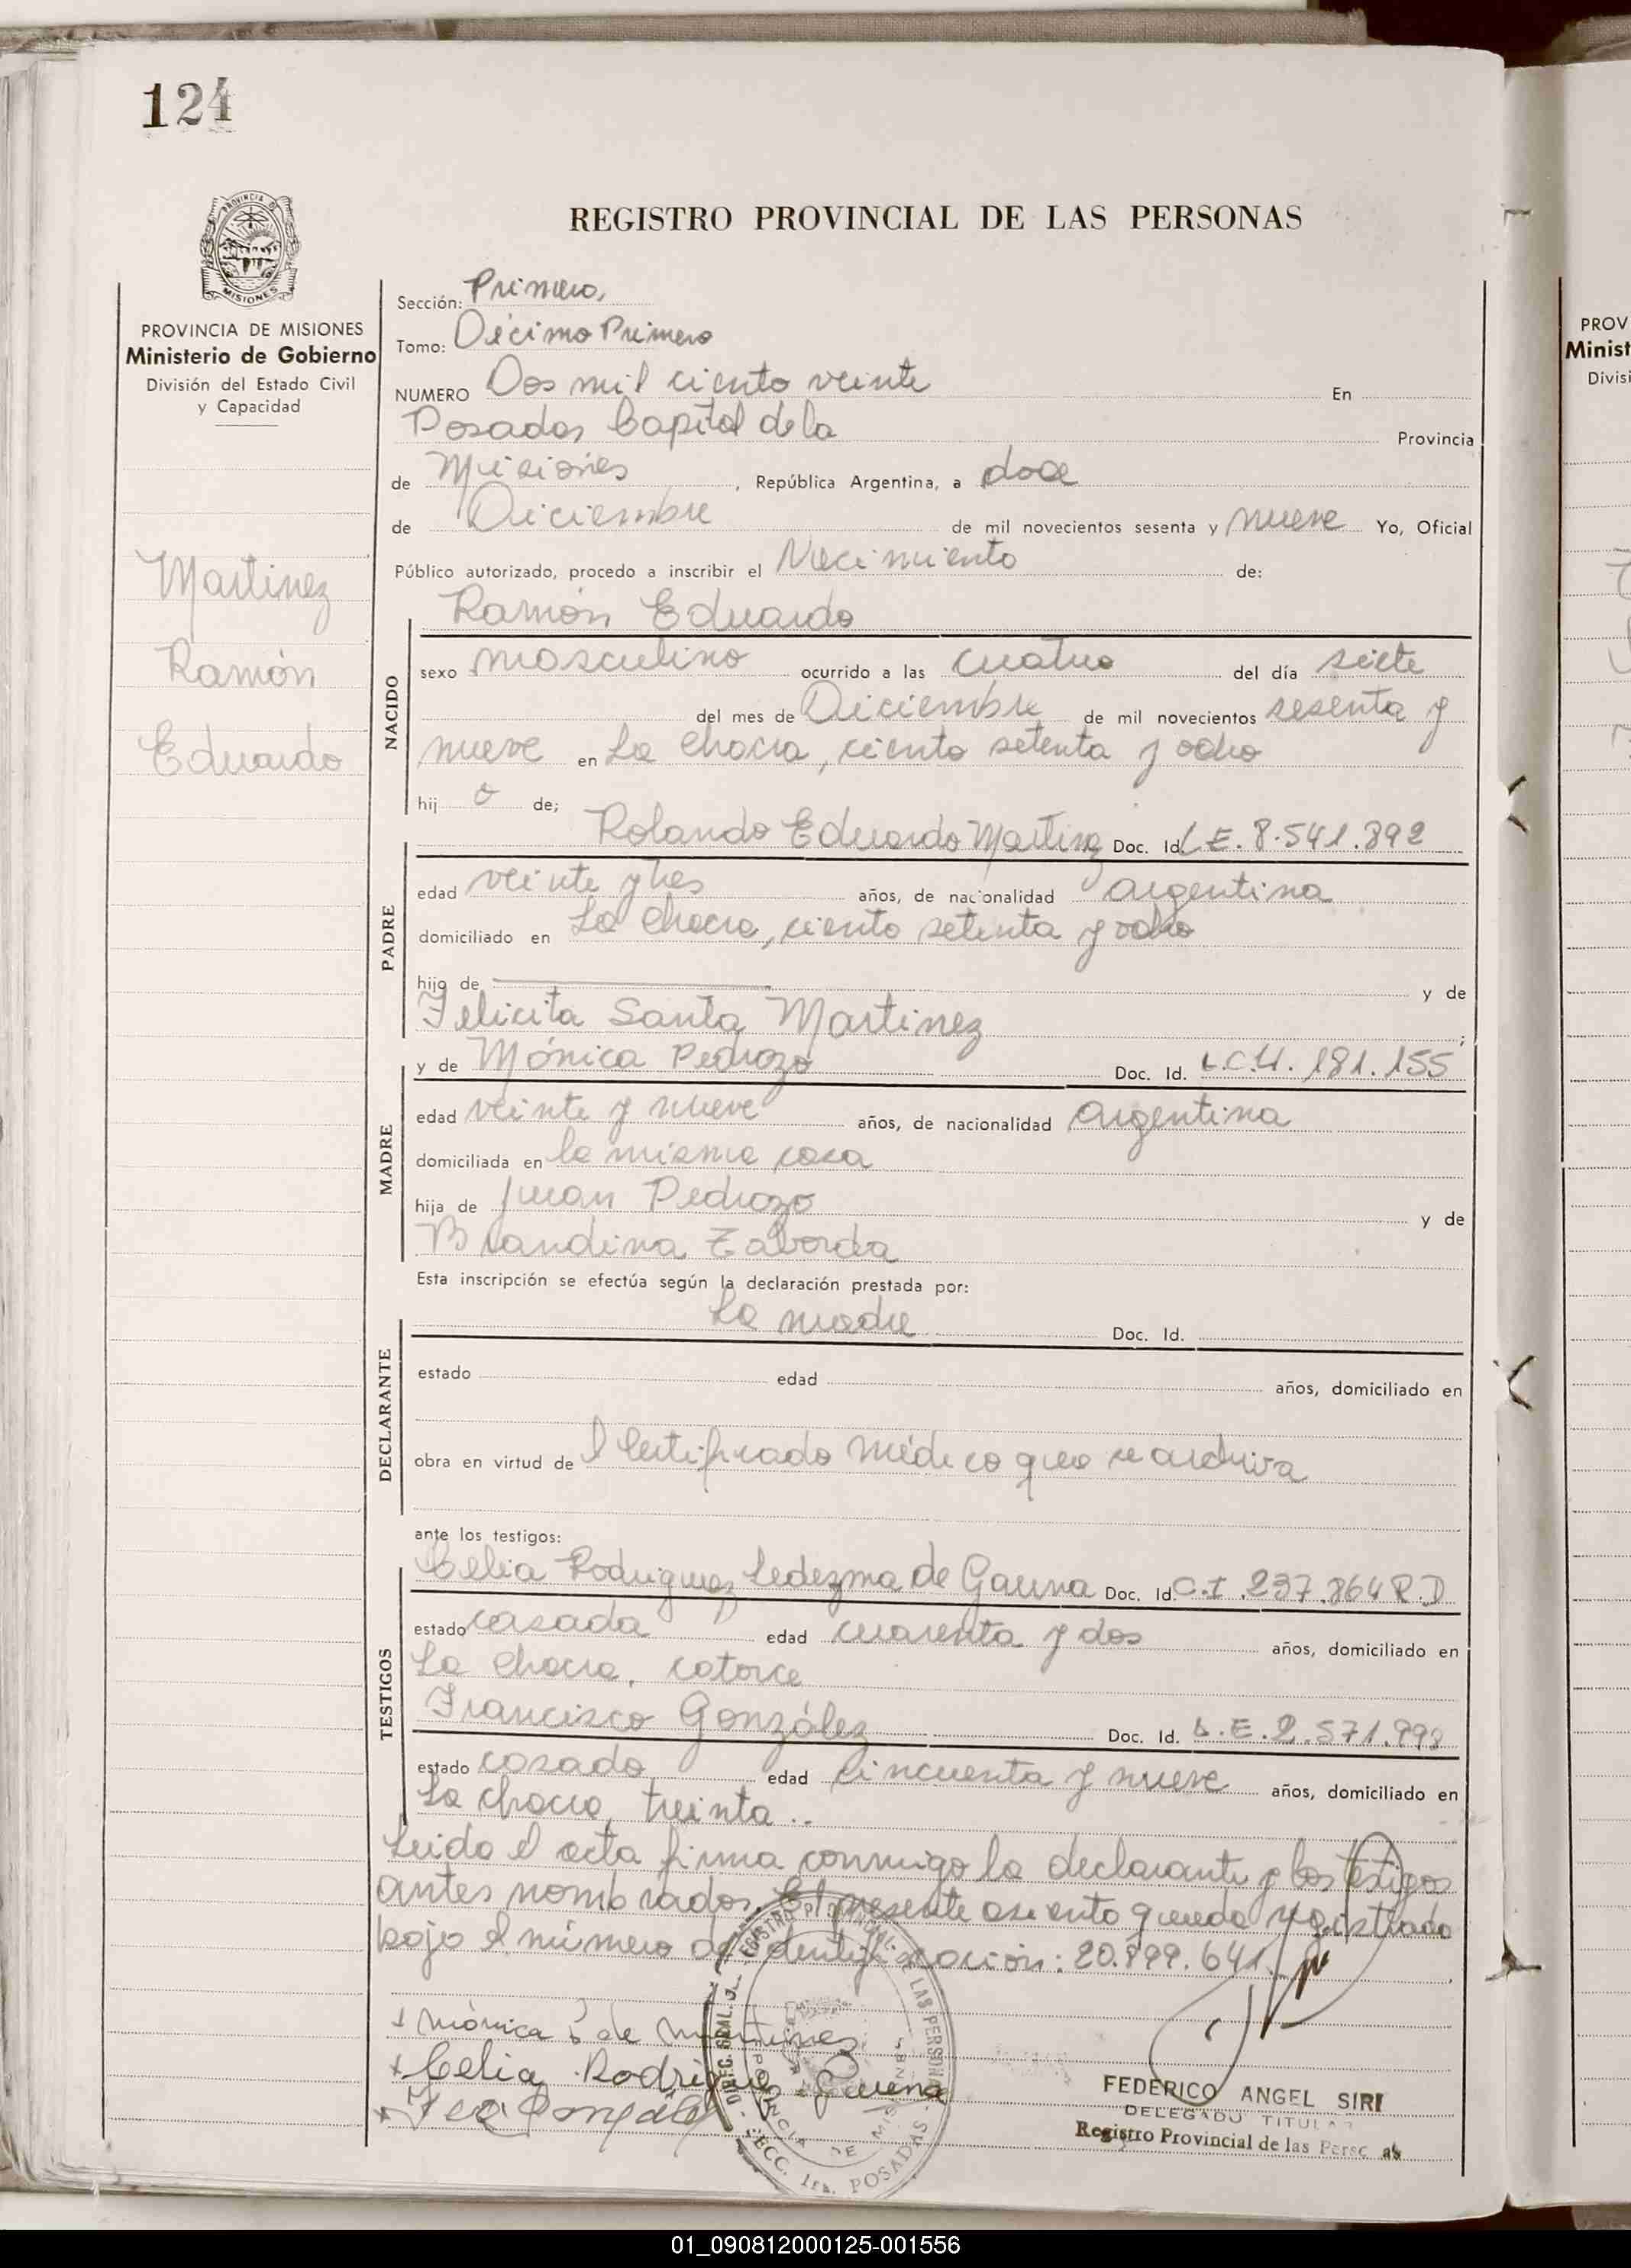 124
PROVINCIA DE
MISIONES
PROVINCIA DE MISIONES
Ministerio de Gobierno
División del Estado Civil
y Capacidad
Martinez
Ramón
Eduardo
REGISTRO PROVINCIAL DE LAS PERSONAS
Sección: Primera,
Tomo: Décimo Primero
NUMERO Dos mil ciento veinte En
Posadas Capital de la Provincia
de Misiones, República Argentina, a doce
de Diciembre de mil novecientos sesenta y nueve Yo, Oficial
Público autorizado, procedo a inscribir el Nacimiento de:
Ramón Eduardo
NACIDO
sexo masculino ocurrido a las cuatro del día siete
del mes de Diciembre de mil novecientos sesenta y
nueve en La Chacra, ciento setenta y ocho
hijo de;
Rolando Eduardo Martinez Doc. Id. L.E. 8.541.892
PADRE
edad veinte y tres años, de nacionalidad argentina
domiciliado en La Chacra, ciento setenta y ocho
hijo de y de
Felicita Santa Martinez ;
y de Mónica Pedrozo Doc. Id. L.C.4.181.155
MADRE
edad veinte y nueve años, de nacionalidad argentina
domiciliada en la misma casa
hija de Juan Pedrozo y de
Blandina Taborda
Esta inscripción se efectúa según la declaración prestada por:
La madre Doc. Id.
DECLARANTE
estado edad años, domiciliado en
obra en virtud de l Certificado médico que se archiva
ante los testigos:
Celia Rodriguez Ledezma de Gauna Doc. Id. C.I. 237.864 R.D
TESTIGOS
estado casada edad cuarenta y dos años, domiciliado en
La Chacra, catorce
Francisco González Doc. Id. L.E.2.571.998
estado casado edad cincuenta y nueve años, domiciliado en
La chacra, treinta..
Leida el acta firma conmigo la declarante y los testigos
antes nombrados. El presente asiento queda registrado
bajo el número de identificación: 20.899.641.
Mónica P de Martinez
Celia Rodriguez Gauna
Fco González
DIREC. GRAL. REGISTRO PROVINCIAL DE LAS PERSONAS
PROVINCIA DE MISIONES
SECC. 1ra. POSADAS
FEDERICO ANGEL SIRI
DELEGADO TITULAR
Registro Provincial de las Personas
PROV
Minist
Divisi
01_090812000125-001556